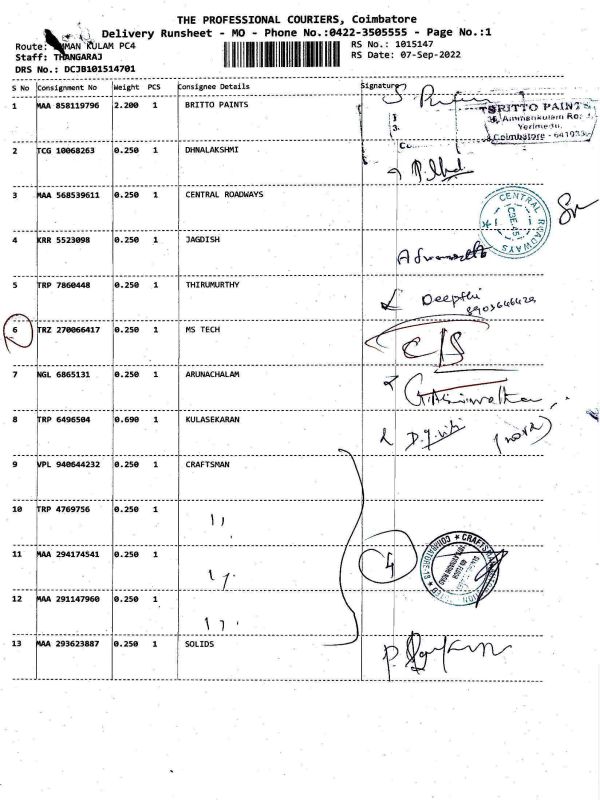 THE PROFESSIONAL COURIERS, Coimbatore
Delivery Runsheet - MO - Phone No.:0422-3505555 - Page No.:1
Route: KULAM PC4
RS No.: 1015147
Staff: THANGARAJ
RS Date: 07-Sep-2022
DRS No.: DCJB101514701
S No Consignment No Weight PCS Consignee Details Signature
1 MAA 858119796 2.200 1 BRITTO PAINTS
BRITTO PAINTS
Coimbatore
2 TCG 10068263 0.250 1 DHNALAKSHMI
3 MAA 568539611 0.250 1 CENTRAL ROADWAYS
CENTRAL ROADWAYS
CBE-45
4 KRR 5523098 0.250 1 JAGDISH
5 TRP 7860448 0.250 1 THIRUMURTHY Deepthi
6 TRZ 270066417 0.250 1 MS TECH
7 NGL 6865131 0.250 1 ARUNACHALAM
8 TRP 6496504 0.690 1 KULASEKARAN
9 VPL 940644232 0.250 1 CRAFTSMAN
10 TRP 4769756 0.250 1 ,,
11 MAA 294174541 0.250 1 ,,
4
12 MAA 291147960 0.250 1 ,,
13 MAA 293623887 0.250 1 SOLIDS